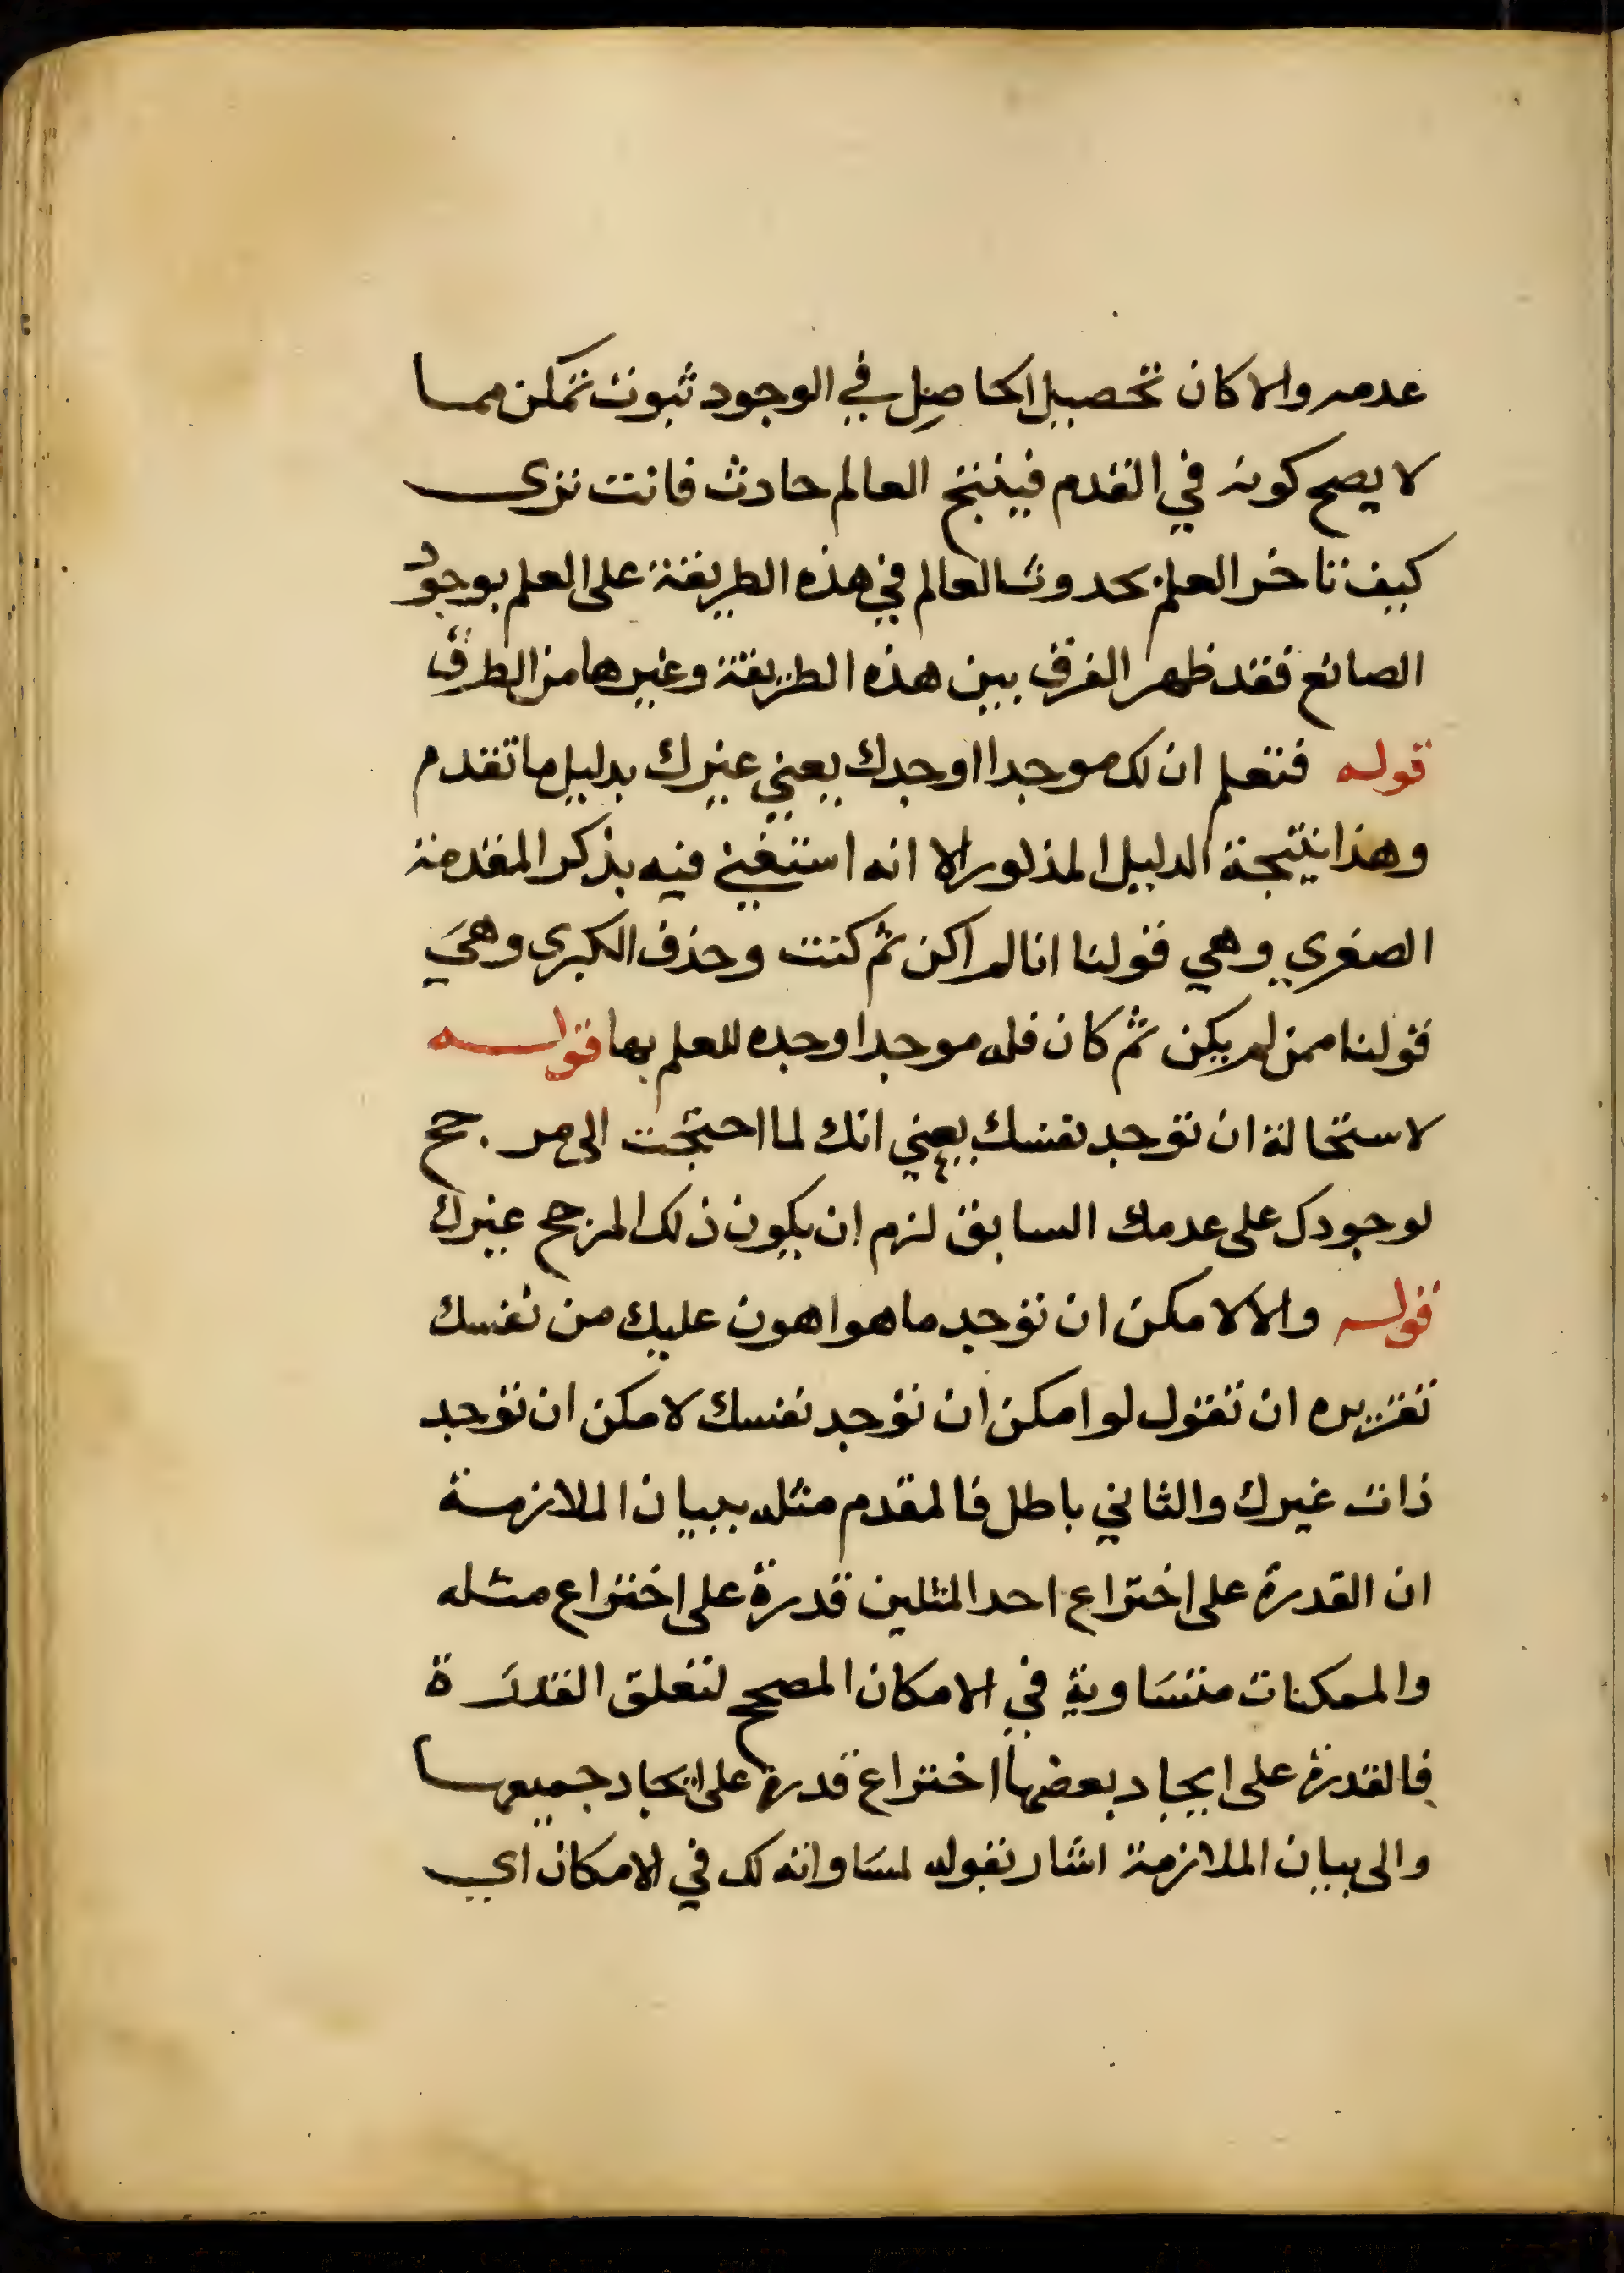 عدمه والا كان تحصيل الحاصل في الوجود ثبوت تمكن مما
لا يصح كونه في القدم فينتج العالم حادث فانت ترى
كيف تاخر العلم بحدوث العالم في هذه الطريقة على العلم بوجود
الصانع فقد ظهر الفرق بين هذه الطريقة وغيرها من الطرق
قوله فتعلم ان لك موجدا اوجدك يعني غيرك بدليل ما تقدم
وهذا نتيجة الدليل المذكور الا انه استغنى فيه بذكر المقدمة
الصغرى وهي قولنا انا لم اكن ثم كنت وحذف الكبرى وهي
قولنا من لم يكن ثم كان فله موجد اوجده للعلم بها قوله
لاستحالة ان توجد نفسك يعني انك لما احتجت الى مرجح
لوجودك على عدمك السابق لزم ان يكون ذلك المرجح غيرك
قوله والا لامكن ان توجد ما هو اهون عليك من نفسك
تقريره ان تقول لو امكن ان توجد نفسك لامكن ان توجد
ذات غيرك والثاني باطل فالمقدم مثله ببيان الملازمة
ان القدرة على اختراع احد المثلين قدرة على اختراع مثله
والممكنات متساوية في الامكان المصحح لتعلق القدرة
فالقدرة على ايجاد بعضها اختراع قدرة على ايجاد جميعها
والى بيان الملازمة اشار بقوله لمساواته لك في الامكان اي